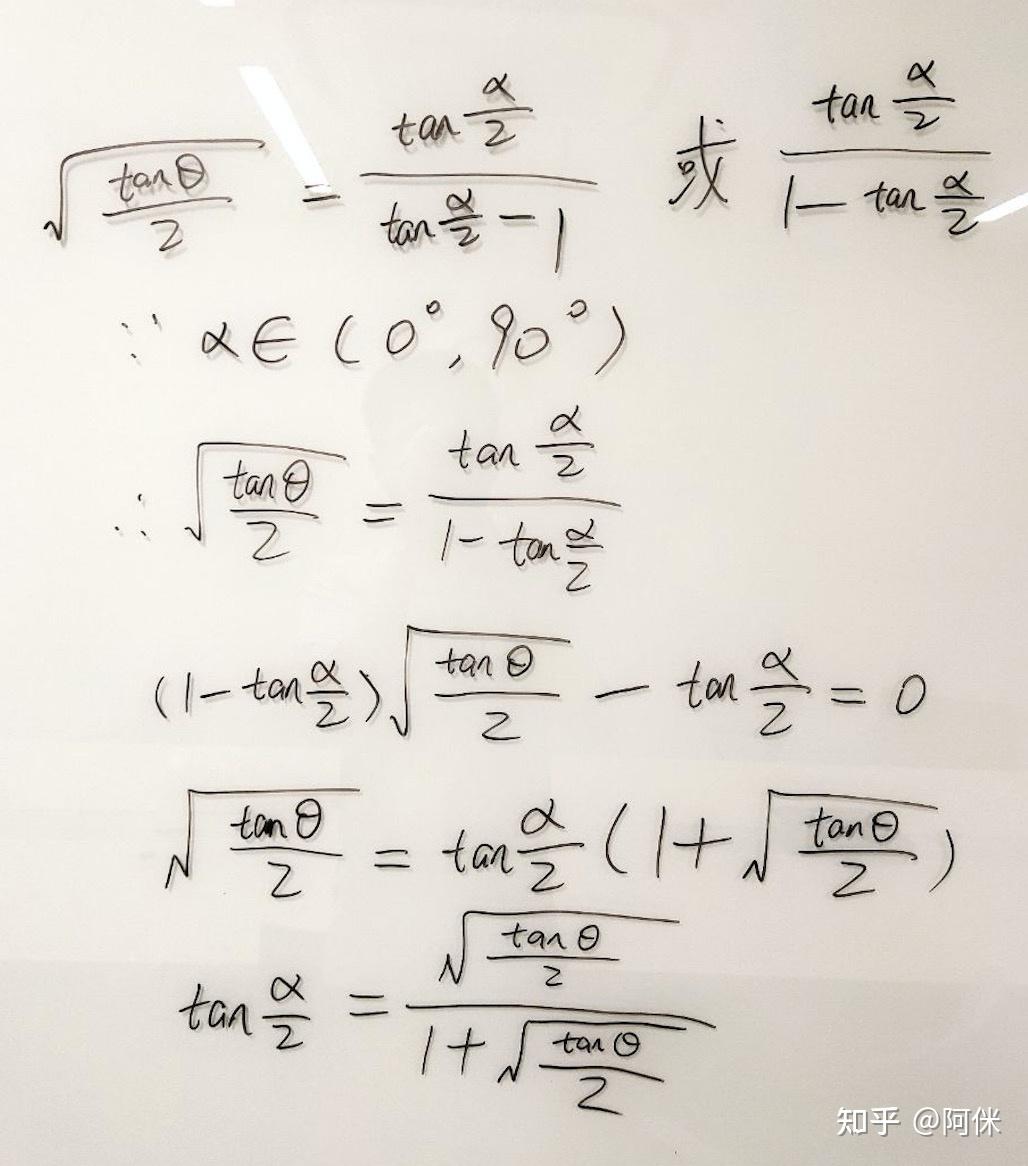 $\sqrt{\frac{\tan\theta}{2}} = \frac{\tan\frac{\alpha}{2}}{\tan\frac{\alpha}{2} - 1}$ 或 $\frac{\tan\frac{\alpha}{2}}{1 - \tan\frac{\alpha}{2}}$
$\because \alpha \in (0^\circ, 90^\circ)$
$\therefore \sqrt{\frac{\tan\theta}{2}} = \frac{\tan\frac{\alpha}{2}}{1 - \tan\frac{\alpha}{2}}$
$(1 - \tan\frac{\alpha}{2})\sqrt{\frac{\tan\theta}{2}} - \tan\frac{\alpha}{2} = 0$
$\sqrt{\frac{\tan\theta}{2}} = \tan\frac{\alpha}{2}(1 + \sqrt{\frac{\tan\theta}{2}})$
$\tan\frac{\alpha}{2} = \frac{\sqrt{\frac{\tan\theta}{2}}}{1 + \sqrt{\frac{\tan\theta}{2}}}$
知乎 @阿侎